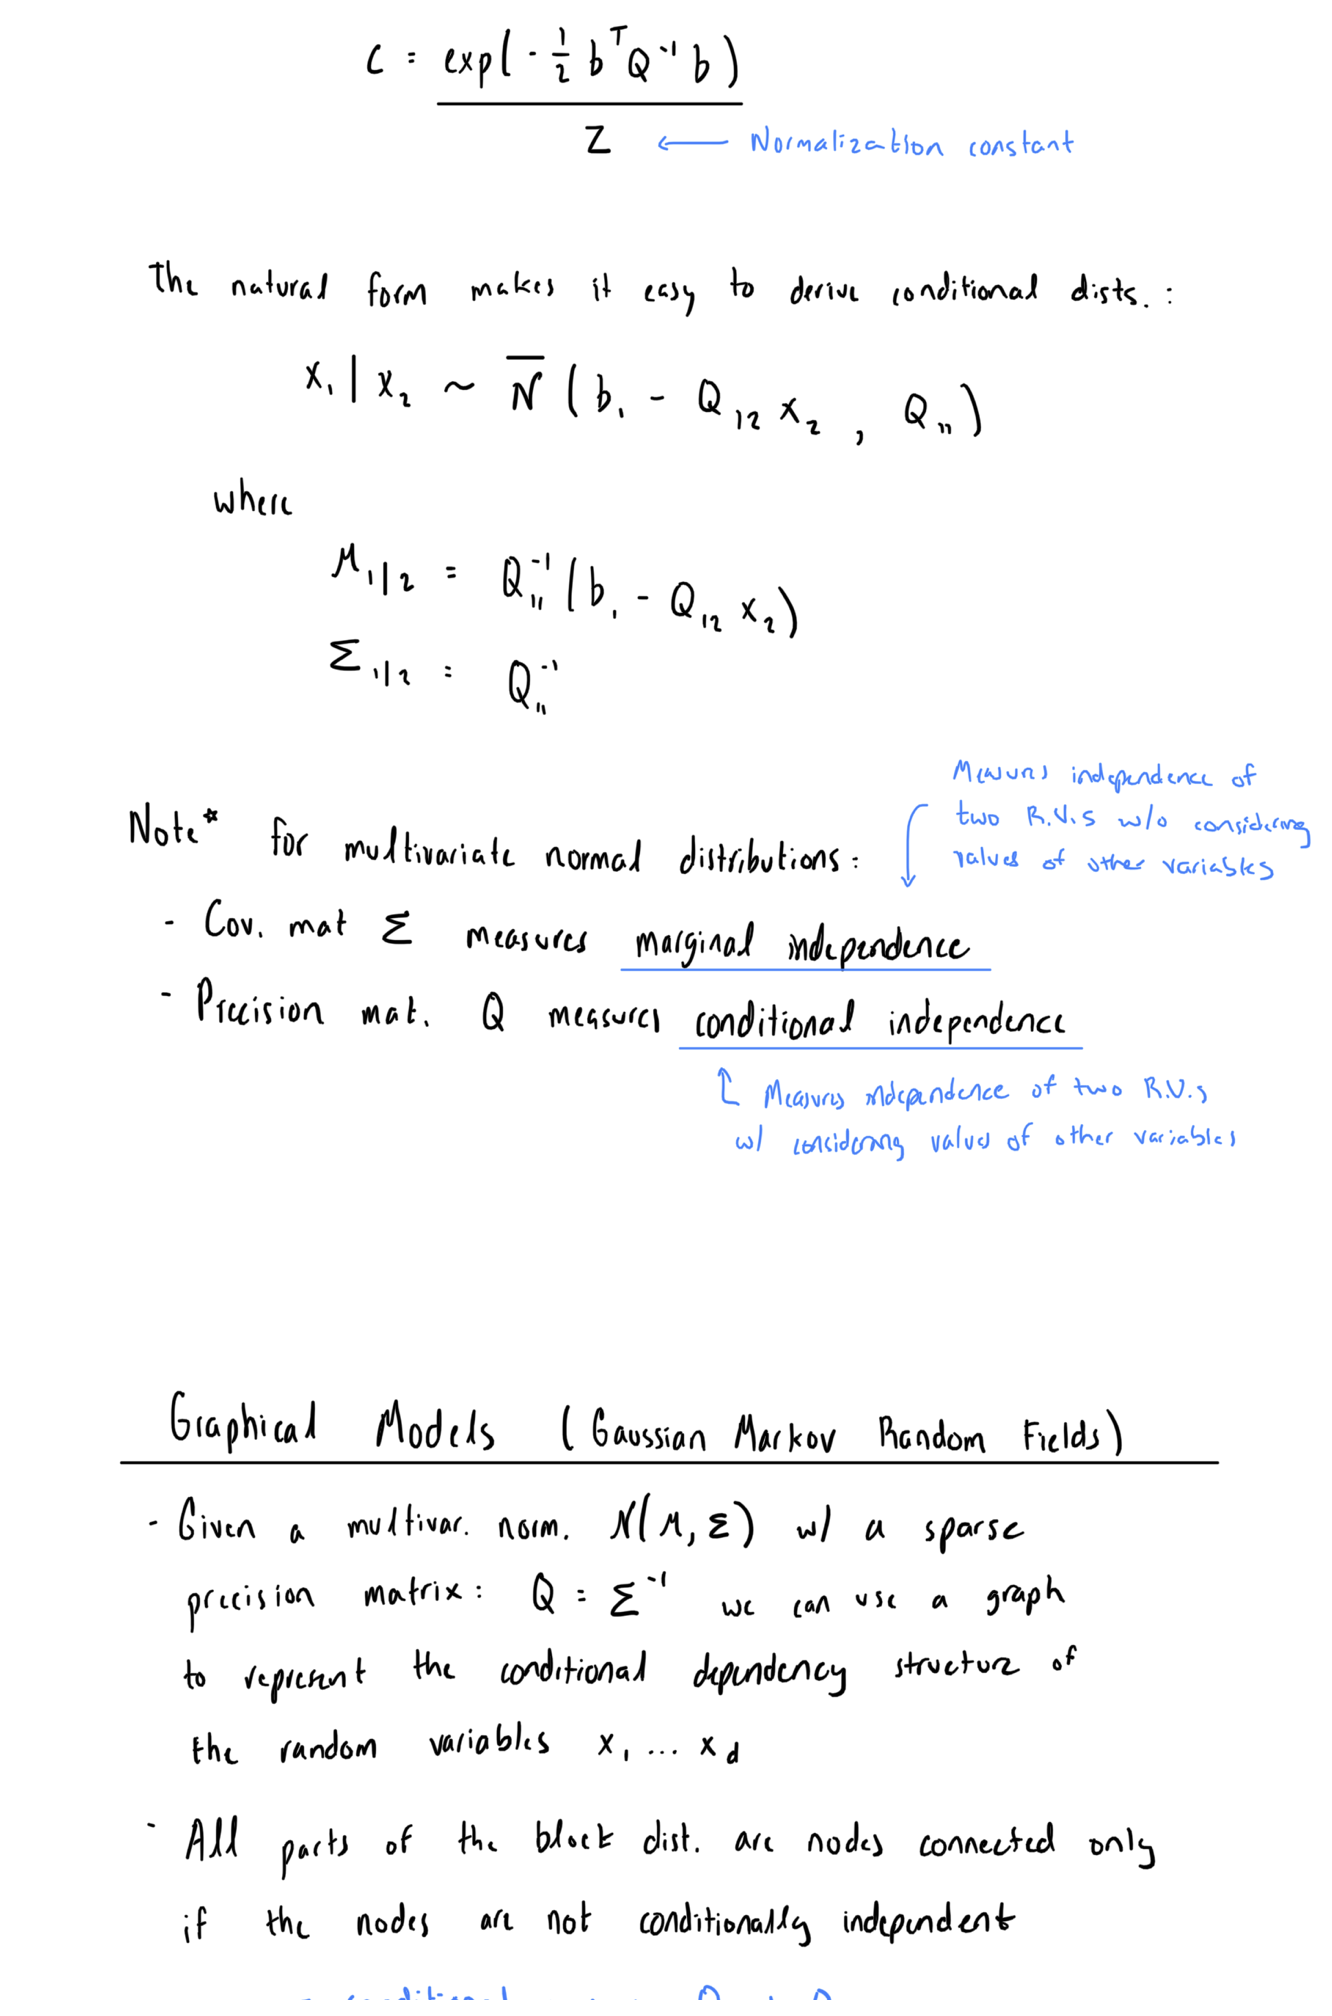 C = exp(-½ bᵀQ⁻¹b)
Z ← Normalization constant
The natural form makes it easy to derive conditional dists. :
x₁ | x₂ ~ N̅ (b₁ - Q₁₂ x₂ , Q₁₁)
where
μ₁|₂ = Q₁₁⁻¹(b₁ - Q₁₂ x₂)
Σ₁|₂ = Q₁₁⁻¹
Measures independence of
two R.V.s w/o considering
values of other variables
Note* for multivariate normal distributions:
- Cov. mat Σ measures marginal independence
- Precision mat. Q measures conditional independence
Measures independence of two R.V.s
w/ considering values of other variables
Graphical Models (Gaussian Markov Random Fields)
- Given a multivar. norm. N(μ, Σ) w/ a sparse
precision matrix: Q = Σ⁻¹ we can use a graph
to represent the conditional dependency structure of
the random variables x₁ ... x_d
- All parts of the block dist. are nodes connected only
if the nodes are not conditionally independent
conditional